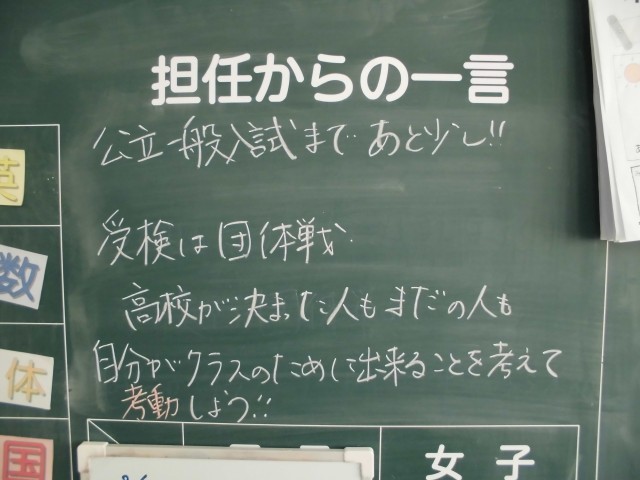 担任からの一言
公立一般入試まで あと少し!!
受検は団体戦
高校が決まった人もまだの人も
自分がクラスのために出来ることを考えて
考動しよう!!
英
数
体
国
女子